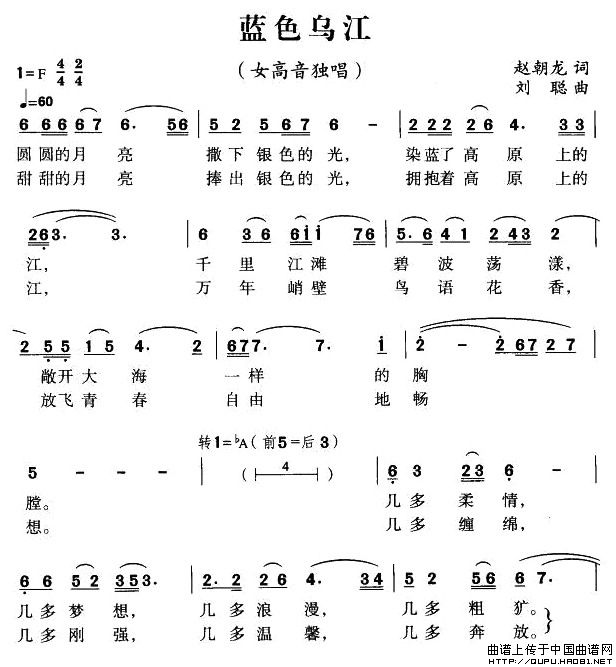 蓝色乌江
1=F 4/4 2/4
（女高音独唱）
赵朝龙 词
♩=60
刘 聪 曲
6 66 67 6. 56 | 52 5 67 6 - | 2 22 26 4. 33 |
圆圆的月 亮 撒下 银色的 光， 染蓝了高 原 上的
甜甜的月 亮 捧出 银色的 光， 拥抱着高 原 上的
263. 3. | 6 36 6ii 76 | 5. 6 41 2 43 2 |
江， 千 里 江滩 碧 波 荡 漾，
江， 万 年 峭壁 鸟 语 花 香，
2 55 15 4. 2 | 677. 7. i | 2 - 2 67 27 |
敞开大 海 一样 的 胸
放飞青 春 自由 地 畅
转1=♭A（前5=后3）
5 - - - | （ 4 ） | 6 3 23 6 - |
膛。 几 多 柔 情，
想。 几 多 缠 绵，
6 6 52 353. | 2. 2 26 4. 34 | 2 2 56 67. |
几 多 梦 想， 几 多 浪 漫， 几 多 粗 犷。
几 多 刚 强， 几 多 温 馨， 几 多 奔 放。
曲谱上传于中国曲谱网
HTTP://QUPU.HAO81.NET